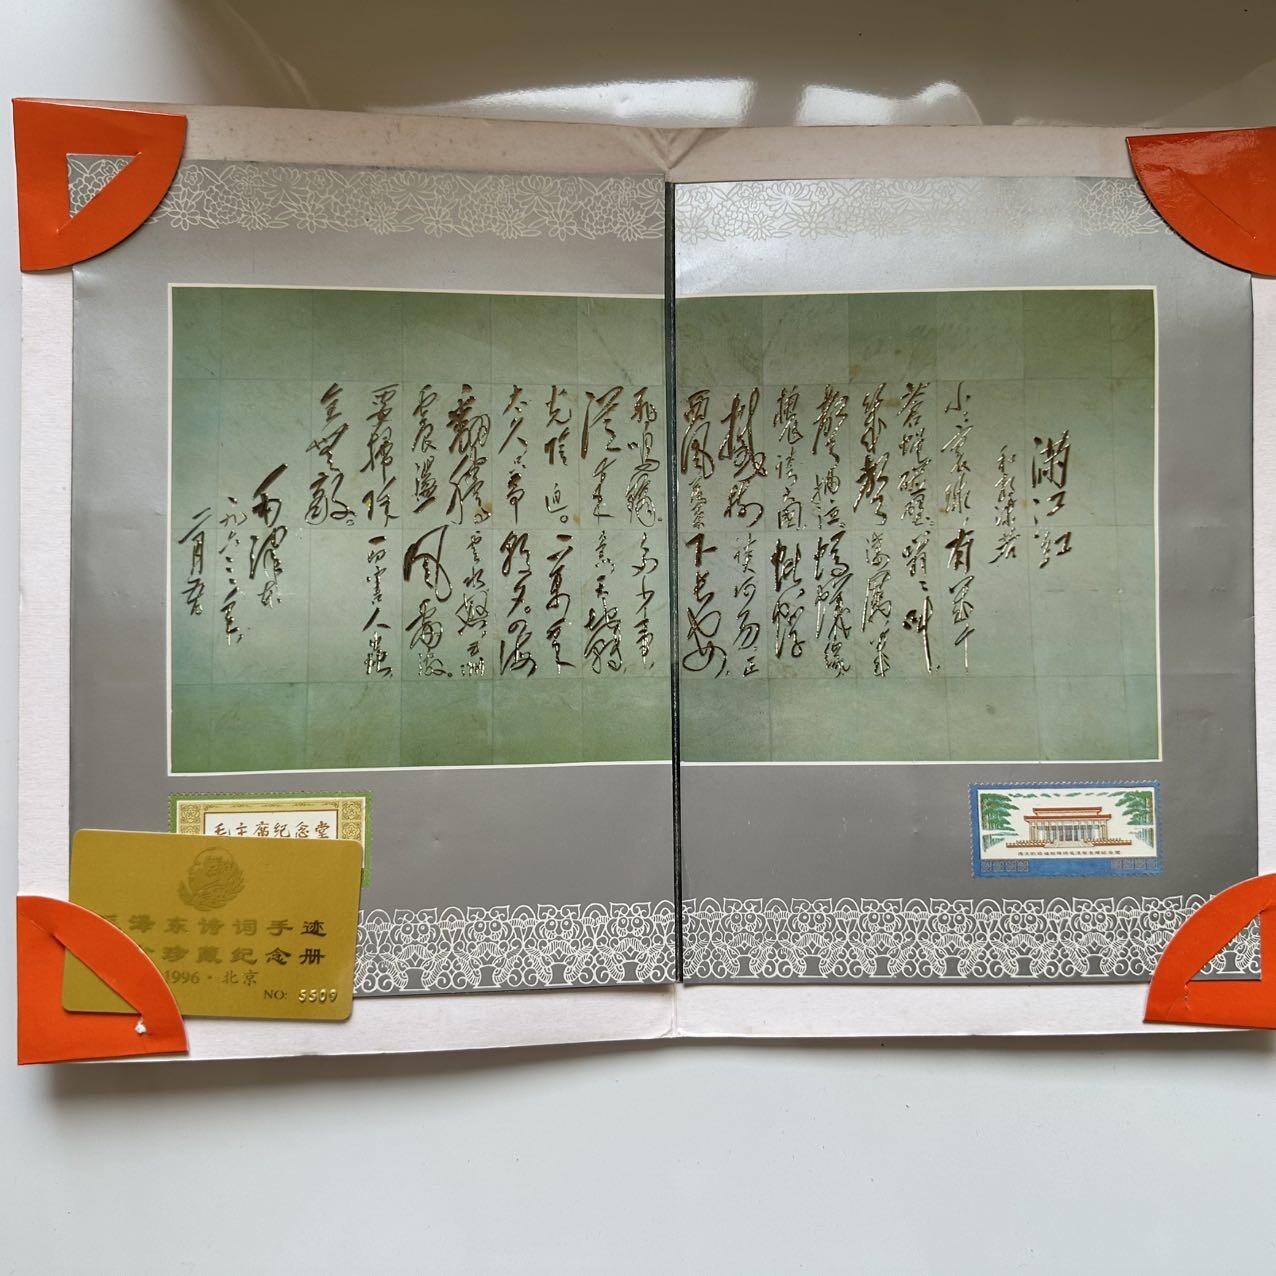 满江红
和郭沫若
小小寰球,有几个
苍蝇碰壁。嗡嗡叫,
几声凄厉,几
声抽泣。蚂蚁缘
槐夸大国,蚍蜉
撼树谈何易。正
西风落叶下长安,
飞鸣镝。多少事,
从来急。天地转,
光阴迫。一万年
太久,只争朝夕。四海
翻腾云水怒,五洲
震荡风雷激。
要扫除一切害人虫,
全无敌。
毛泽东
一九六三年
二月五日
毛主席纪念堂
泽东诗词手迹
珍藏纪念册
1996·北京
NO: 5509